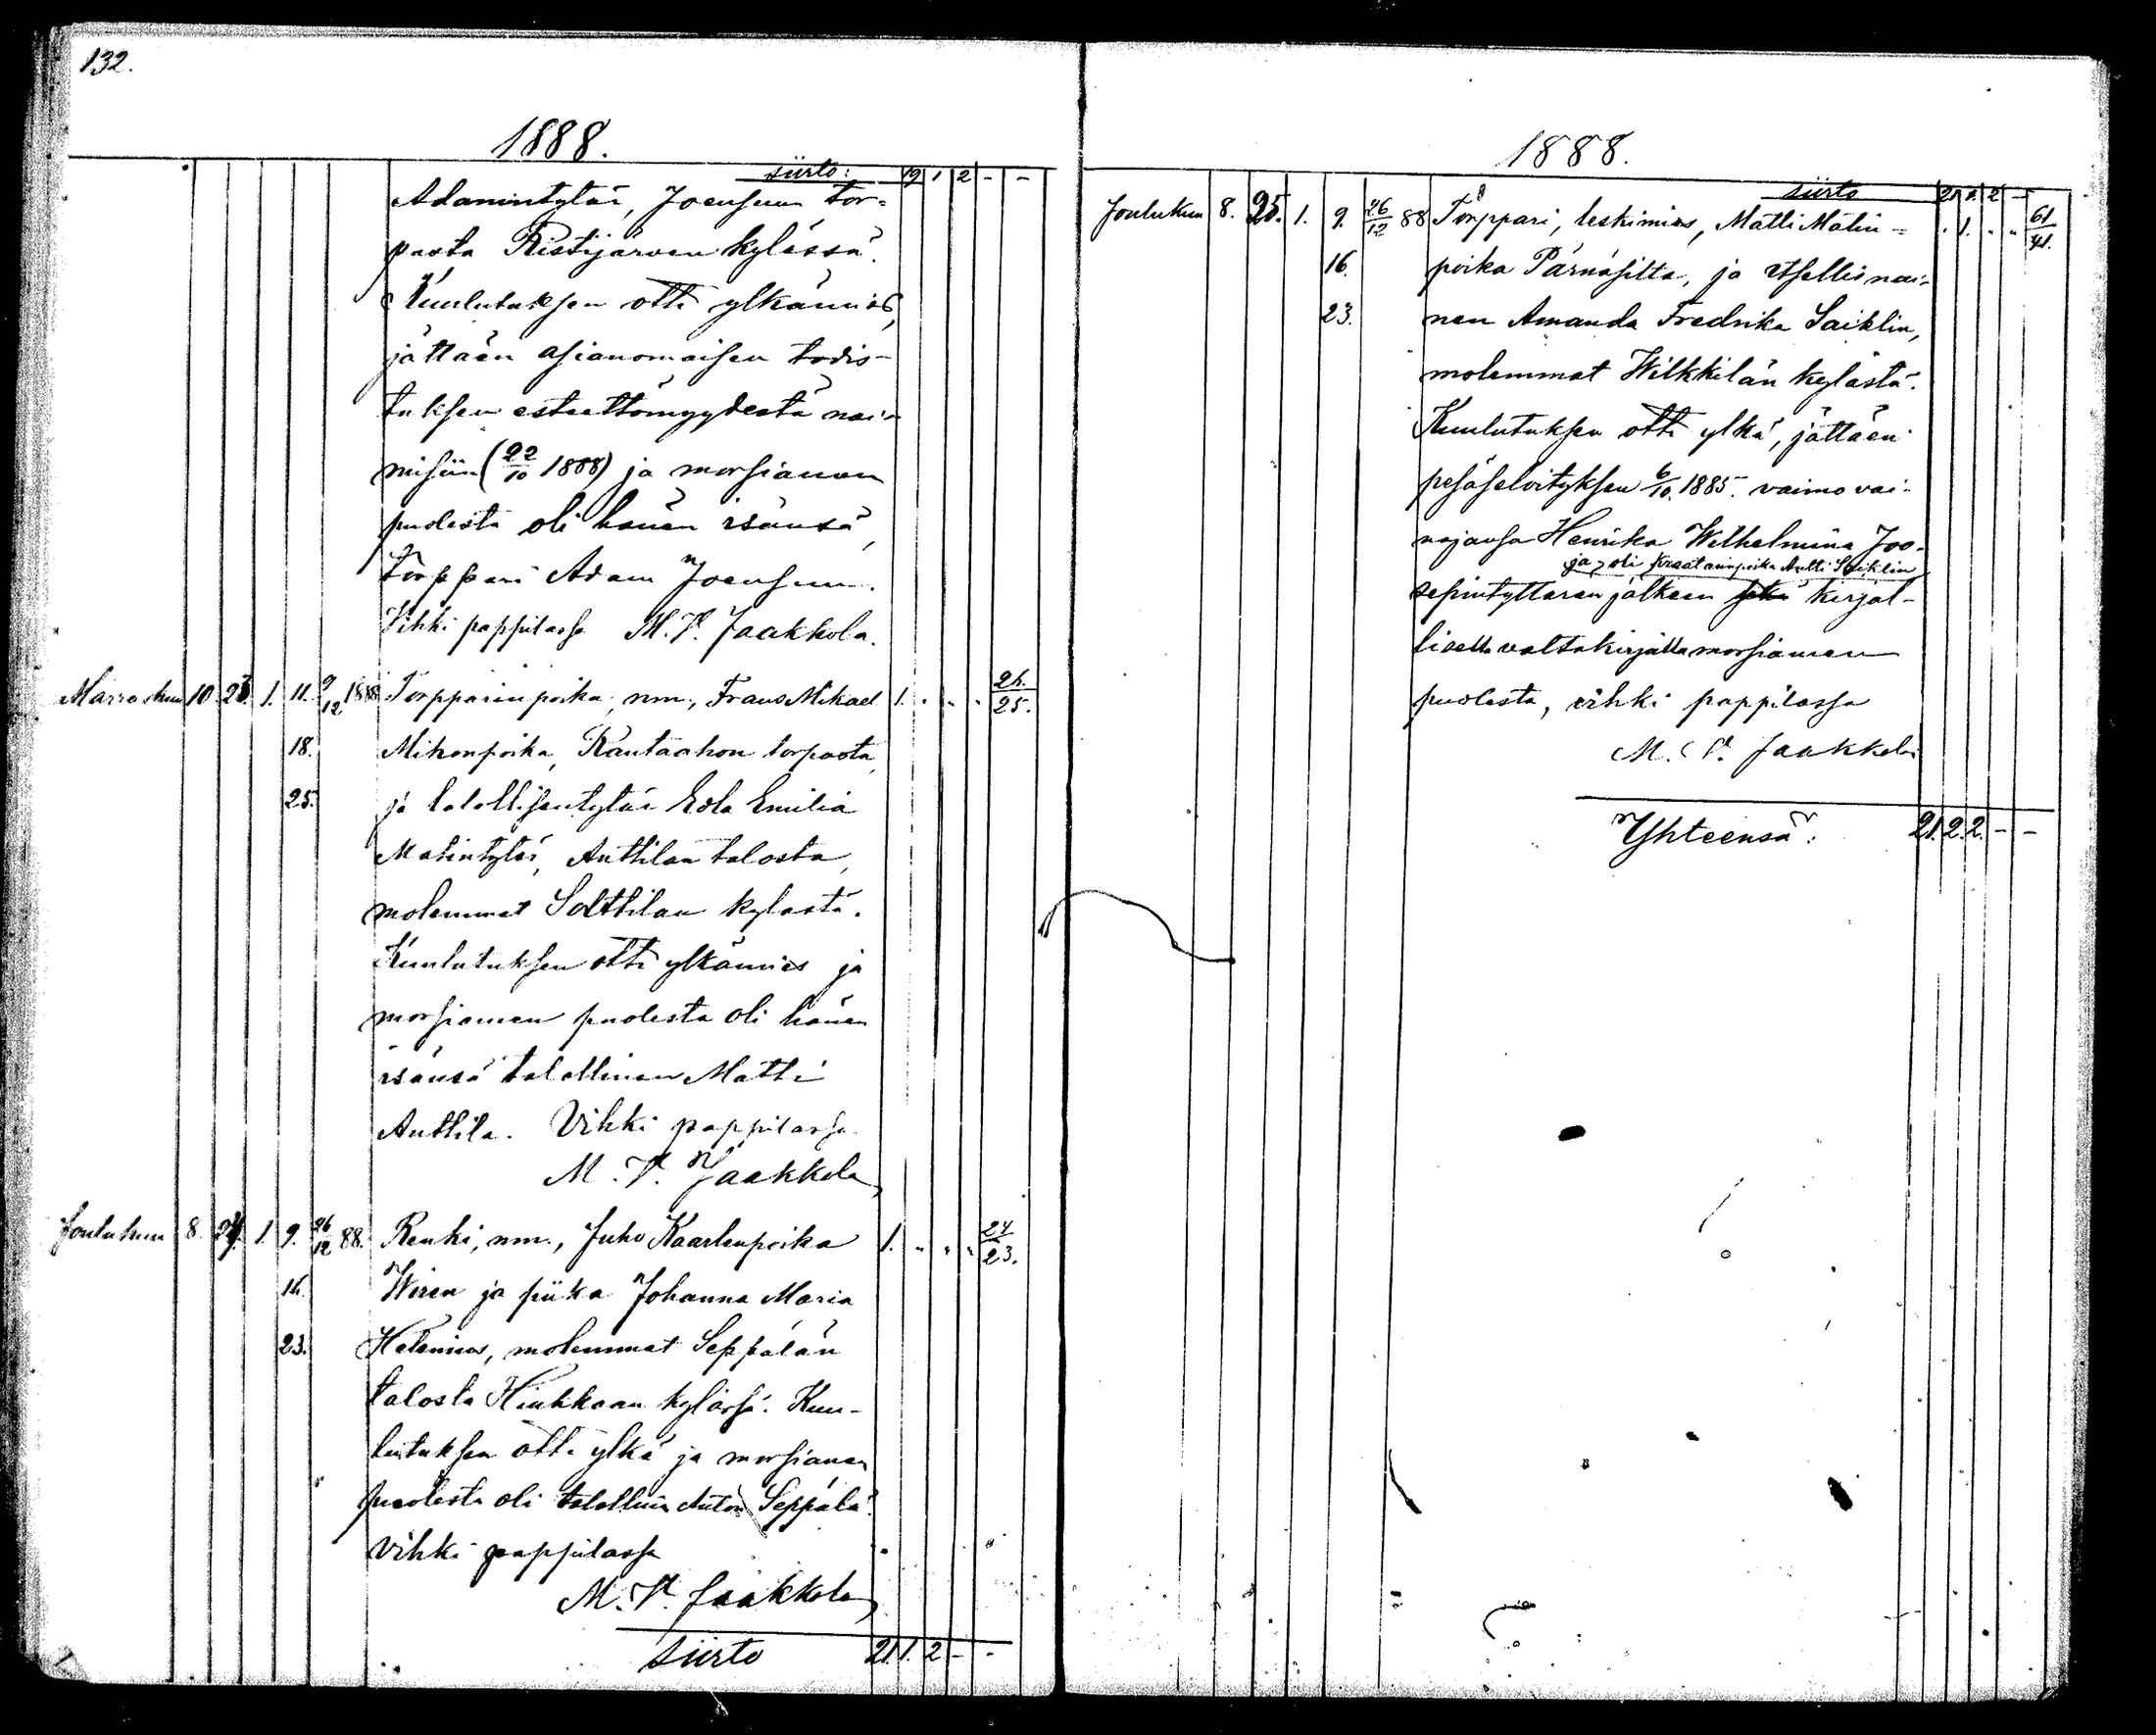 132.
1888.
siirto: 19 1 2 - -
Adamintytär, Joensuun tor-
pasta Ristijärven kylässä.
Kuulutuksen otti ylkämies,
jättäen asianomaisen todis-
tuksen esteettömyydestä nai-
misiin (22/10 1888) ja morsiamen
puolesta oli hänen isänsä,
torppari Adam Joensuu.
Vihki pappilassa M. V. Jaakkola.
Marraskuun 10. 23. 1. 11. 9/12 1888 Torpparinpoika, nm., Frans Mikael 1. . . . 26./25.
18. Mikonpoika, Rautaahon torpasta,
25. ja talollisentytär Eva Emilia
Matintytär, Anttilan talosta,
molemmat Solttilan kylästä.
Kuulutuksen otti ylkämies ja
morsiamen puolesta oli hänen
isänsä talollinen Matti
Anttila. Vihki pappilassa
M. V. Jaakkola
Joulukuun 8. 24. 1. 9. 26/12 88. Renki, nm., Juho Kaarlenpoika 1. . . . 24/23.
16. Wiren ja piika Johanna Maria
23. Helenius, molemmat Seppälän
talosta Hinkkaan kylässä. Kuu-
lutuksen otti ylkä ja morsiamen
puolesta oli talollinen Anton Seppälä.
Vihki pappilassa
M. V. Jaakkola
Siirto 21. 1. 2 - -
1888.
siirto 21. 1. 2 - -
Joulukuun 8. 25. 1. 9. 26/12 88 Torppari, leskimies, Matti Matin- . 1. . . 61/41.
16. poika Pärnäsilta, ja itsellisnai-
23. nen Amanda Fredrika Saiklin,
molemmat Wilkkilän kylästä.
Kuulutuksen otti ylkä, jättäen
pesäselvityksen 6/10. 1885. vaimo vai-
najansa Henrika Wilhelmina Joo-
ja oli Anttі Saiklin
sepintyttären jälkeen kirjal-
lisella valtakirjalla morsiamen
puolesta, vihki pappilassa
M. V. Jaakkola
Yhteensä: 21. 2. 2. - -